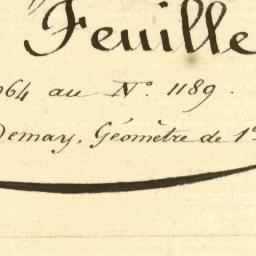 Feuille
964 au N°. 1189.
Demay, Géomètre de 1e